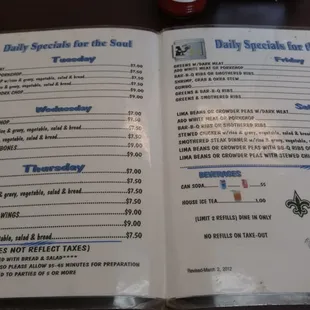 Daily Specials for the Soul
Tuesday
$7.00
PORKCHOP $7.00
e w/ gravy, vegetable, salad & bread $7.50
$7.50
PORK CHOP $9.00
Wednesday
CHOP $7.00
rice & gravy, vegetable, salad & bread $7.50
vegetable, salad & bread $7.50
BONES $9.00
$9.00
Thursday
$7.00
$7.00
gravy, vegetable, salad & bread $7.50
$9.00
WINGS $9.00
$9.00
table, salad & bread $7.50
ES NOT REFLECT TAXES)
ED WITH BREAD & SALAD****
SO PLEASE ALLOW 35-45 MINUTES FOR PREPARATION
TED TO PARTIES OF 5 OR MORE
Daily Specials for th
Friday
GREENS W/DARK MEAT
ADD WHITE MEAT OR PORKCHOP
BAR-B-Q RIBS OR SMOTHERED RIBS
SHRIMP, CRAB & OKRA STEW
GUMBO
GREENS & BAR-B-Q RIBS
GREENS & SMOTHERED RIBS
Sa
LIMA BEANS OR CROWDER PEAS W/DARK MEAT
ADD WHITE MEAT OR PORKCHOP
BAR-B-Q RIBS OR SMOTHERED RIBS
STEWED CHICKEN w/rice & gravy, vegetable, salad & bread
SMOTHERED STEAK DINNER w/rice & gravy, vegetable, salad
LIMA BEANS OR CROWDER PEAS WITH BB-Q RIBS
LIMA BEANS OR CROWDER PEAS WITH STEWED CHI
BEVERAGES
CAN SODA
HOUSE ICE TEA 1.00
(LIMIT 3 REFILLS) DINE IN ONLY
NO REFILLS ON TAKE-OUT
Revised March 3, 2012